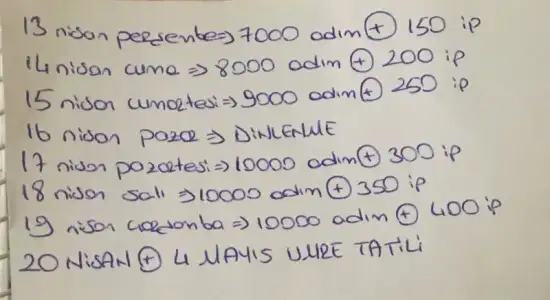 13 nisan perşembe⇒ 7000 adım ⊕ 150 ip
14 nisan cuma ⇒ 8000 adım ⊕ 200 ip
15 nisan cumartesi⇒ 9000 adım ⊕ 250 ip
16 nisan pazar ⇒ DİNLENME
17 nisan pazartesi⇒ 10000 adım ⊕ 300 ip
18 nisan salı ⇒ 10000 adım ⊕ 350 ip
19 nisan çarşamba ⇒ 10000 adım ⊕ 400 ip
20 NİSAN ⊕ 4 MAYIS UMRE TATİLİ